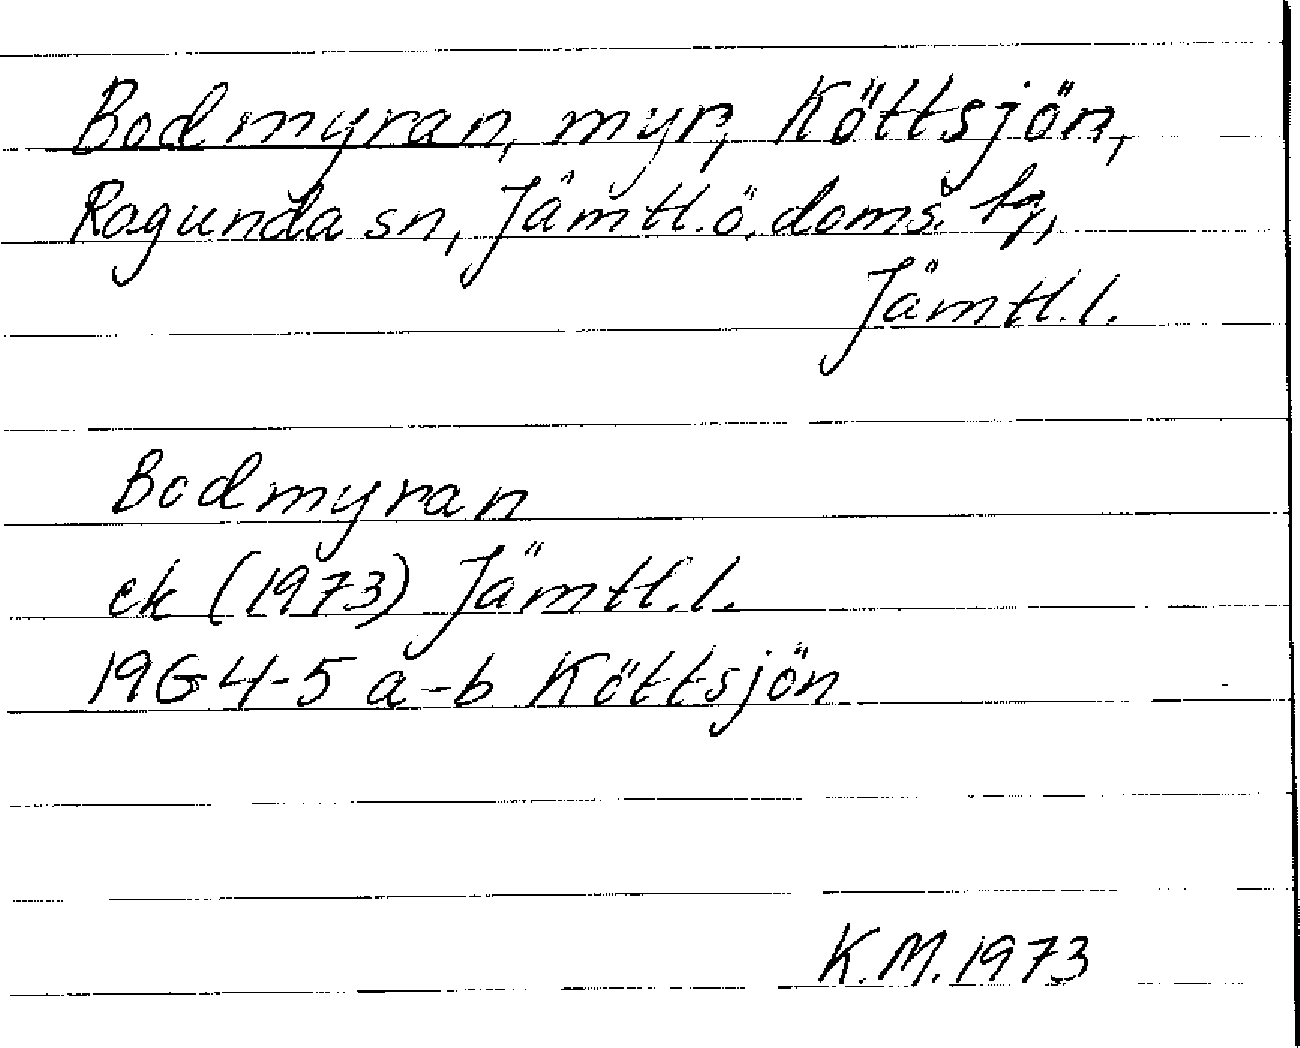 Bodmyran, myr, Köttsjön,
Ragunda sn, Jämtl. ö. doms. tg,
Jämtl. l.
Bodmyran
ek (1973) Jämtl. l.
19G 4-5 a-b Köttsjön
K.M. 1973